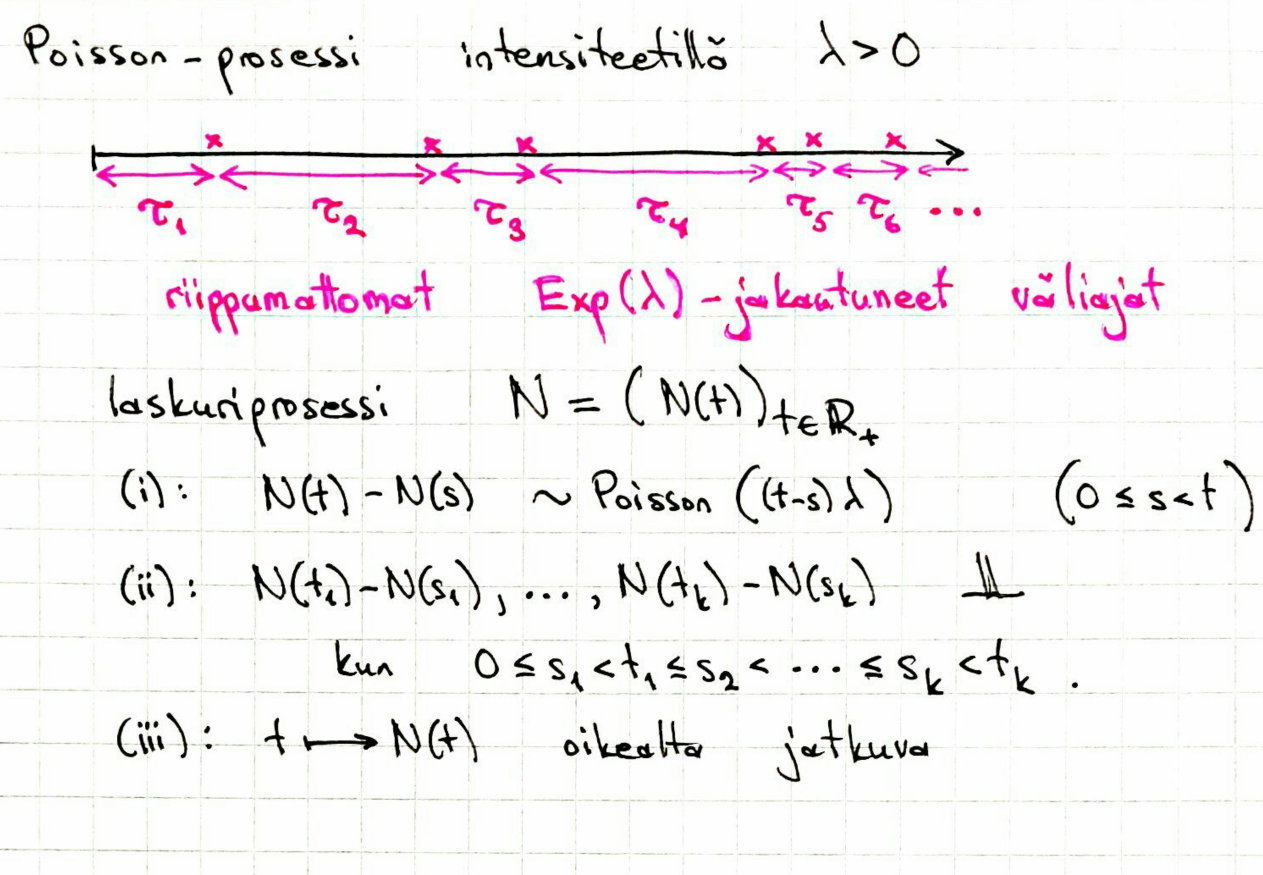 Poisson-prosessi intensiteetillä λ > 0
× × × × × ×
τ₁ τ₂ τ₃ τ₄ τ₅ τ₆ ...
riippumattomat Exp(λ)-jakautuneet väliajat
laskuriprosessi N = (N(t))_{t∈ℝ₊}
(i): N(t) - N(s) ~ Poisson((t-s)λ) (0 ≤ s < t)
(ii): N(t₁)-N(s₁), ..., N(t_k)-N(s_k) ⫫
kun 0 ≤ s₁ < t₁ ≤ s₂ < ... ≤ s_k < t_k .
(iii): t ↦ N(t) oikealta jatkuva